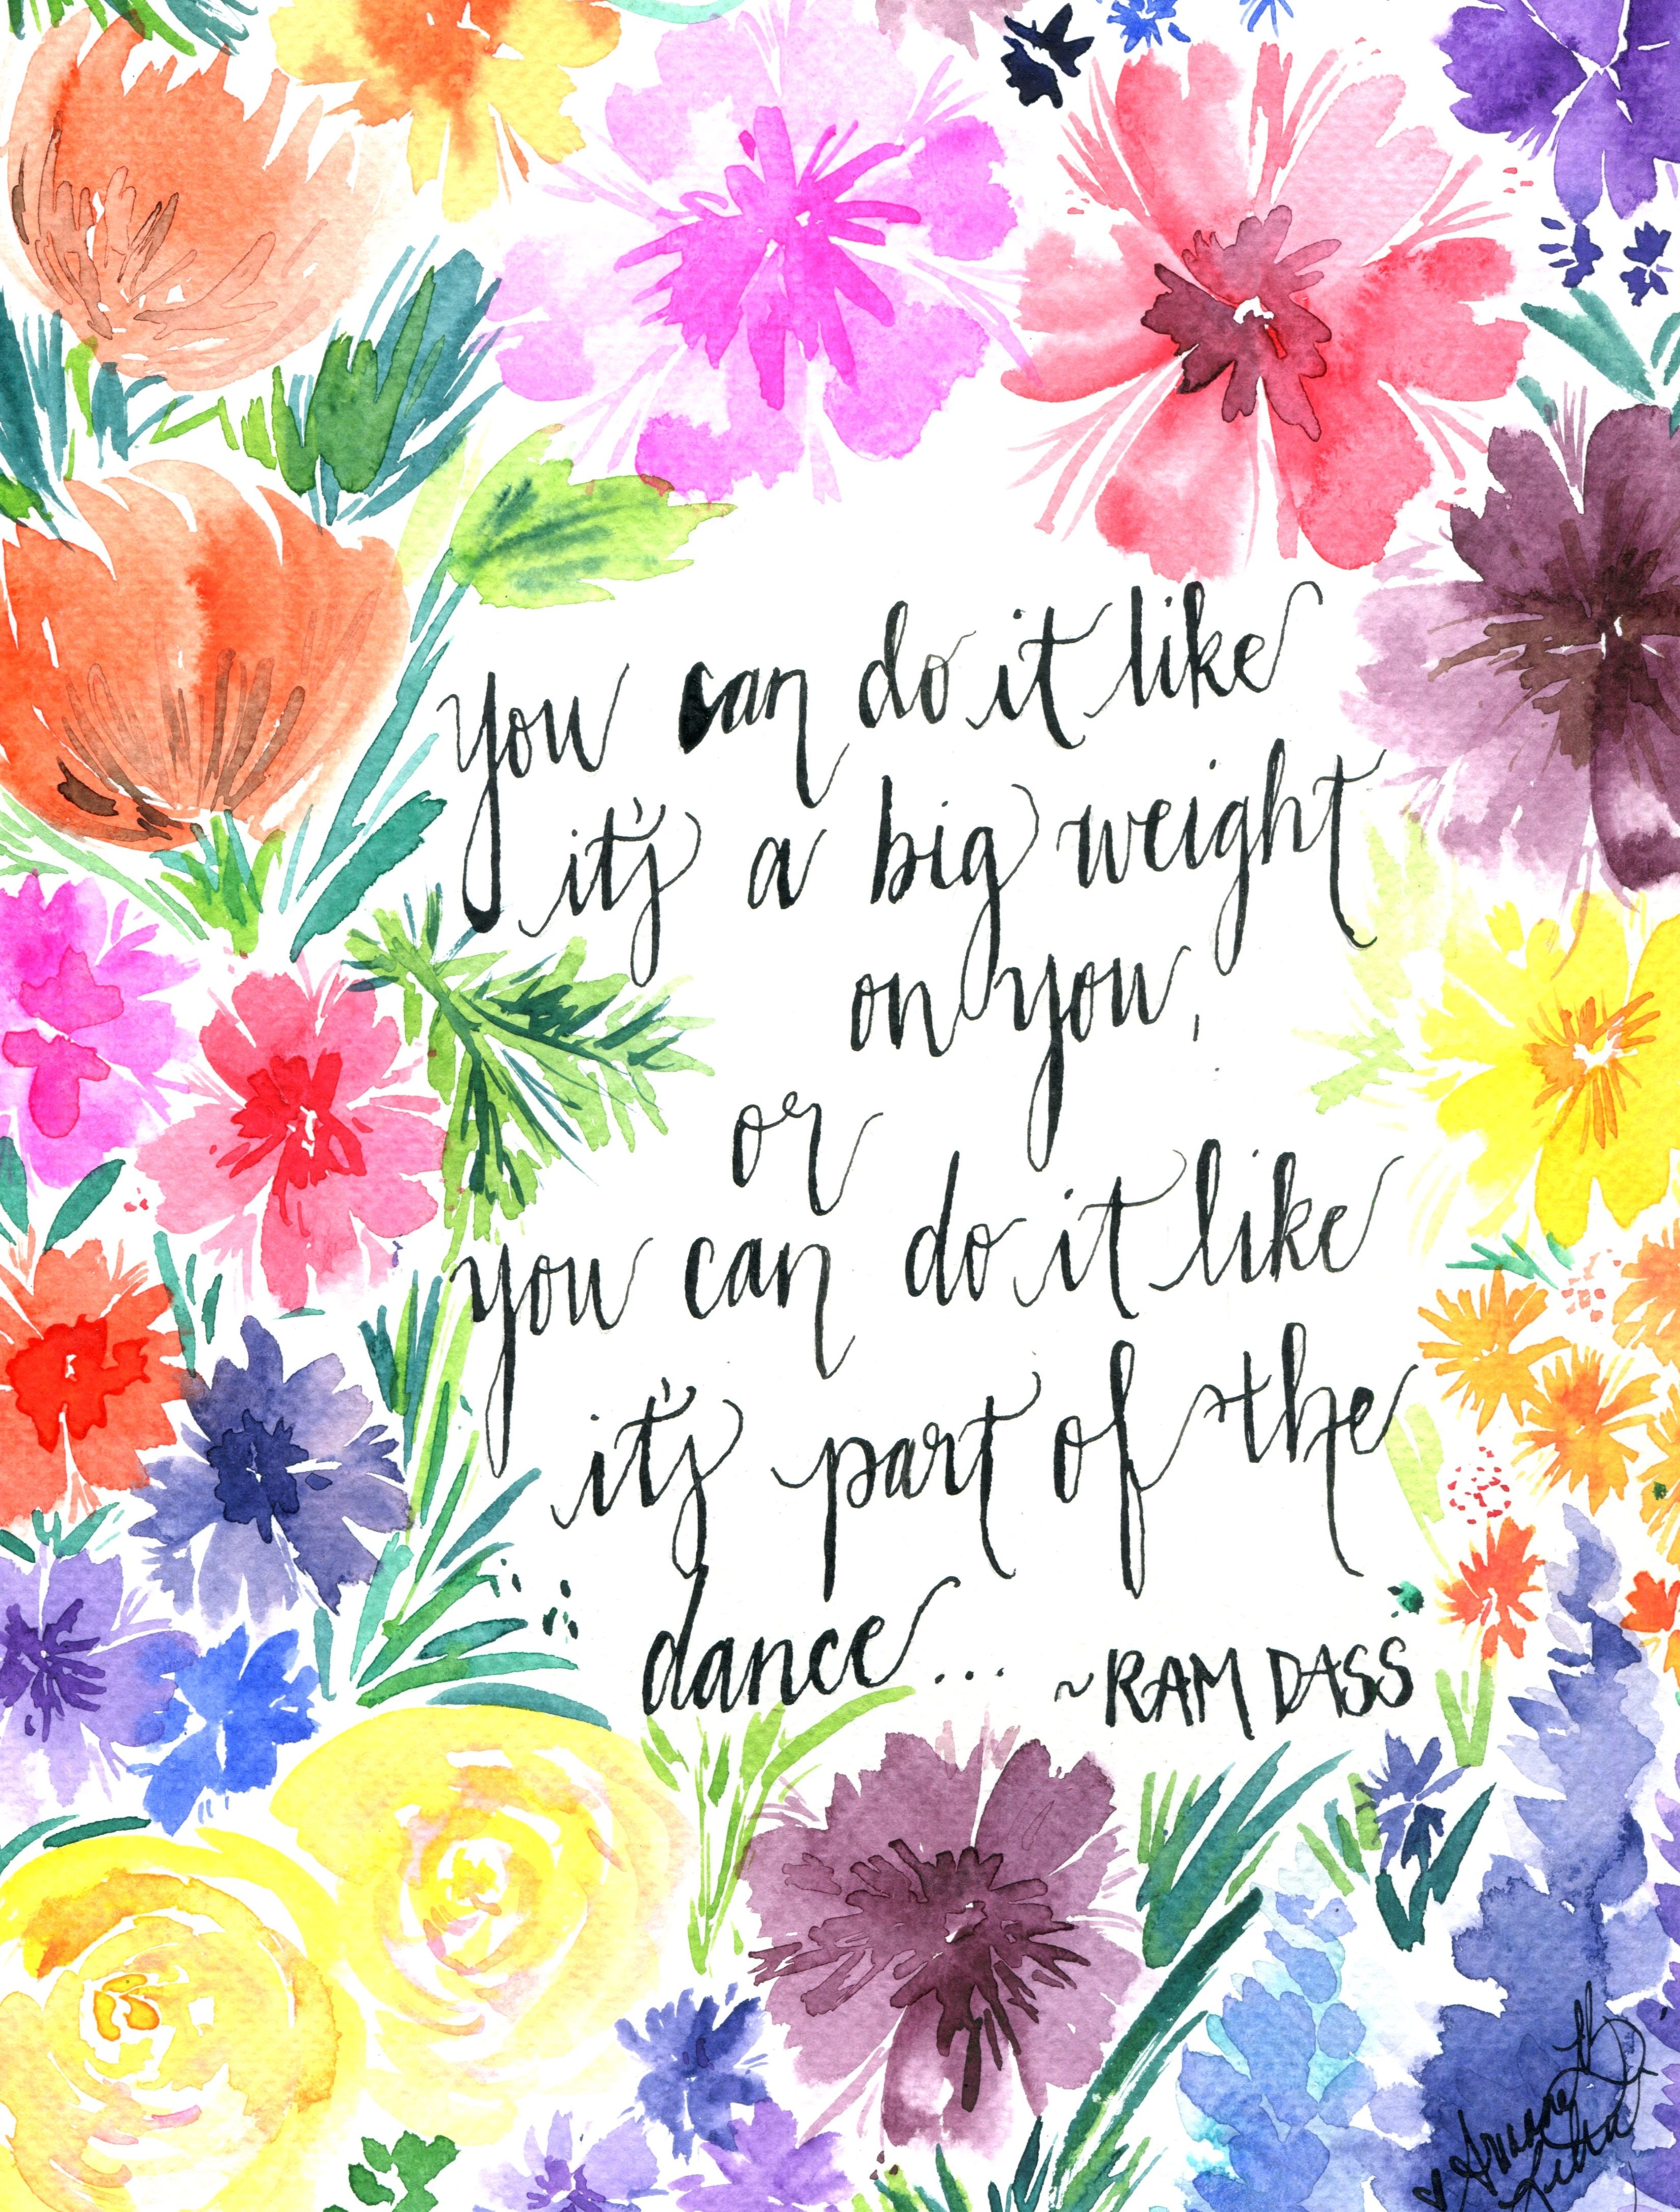 you can do it like
it's a big weight
on you,
or
you can do it like
it's part of the
dance...
~RAM DASS